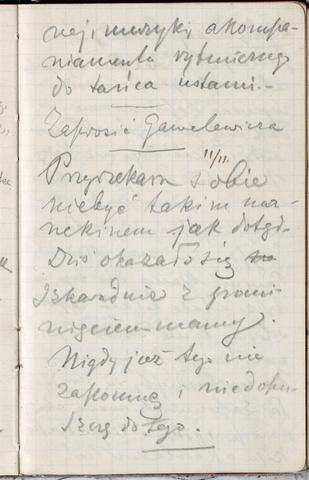 nej, muzyki, akompa-
niamentu rytmicznego
do tańca ustami.-
Zaprosić Gawelewicza
11/11.
Przyrzekam sobie
niebyć takim mar-
nekinem jak dotąd.
Dziś okazało się
Iskaradnie z
mamy.
Nigdy już tego nie
zapomnę i niedopu-
szczę do tego.